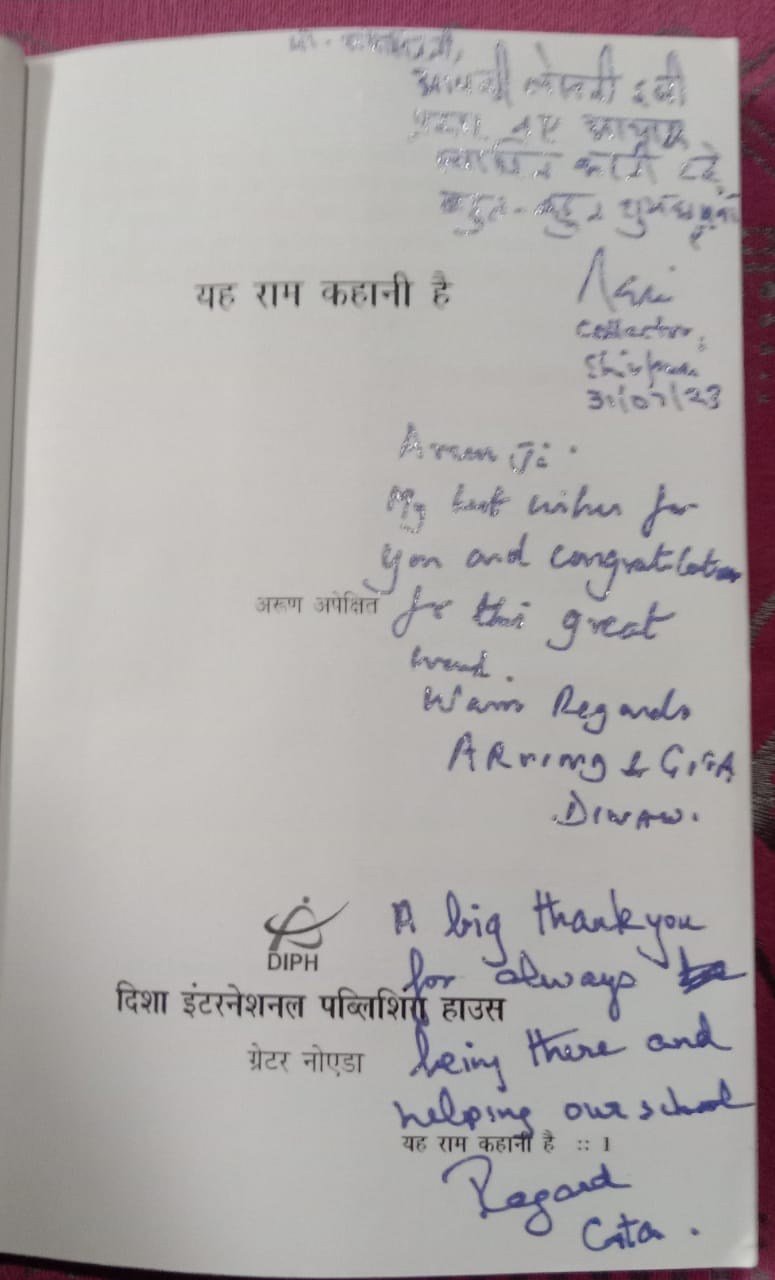 आपकी लेखनी इसी
प्रकार नए आयाम
स्थापित करती रहे,
बहुत-बहुत
यह राम कहानी है
Collector,
Shivpuri
31/07/23
Arun Ji.
My best wishes for
you and congratulation
अरूण अपेक्षित
for this great
Warm Regards
& GITA
DIWAN.
A big thank you
DIPH
for always
दिशा इंटरनेशनल पब्लिशिंग हाउस
being there and
ग्रेटर नोएडा
helping our school
यह राम कहानी है :: 1
Regard
Gita.